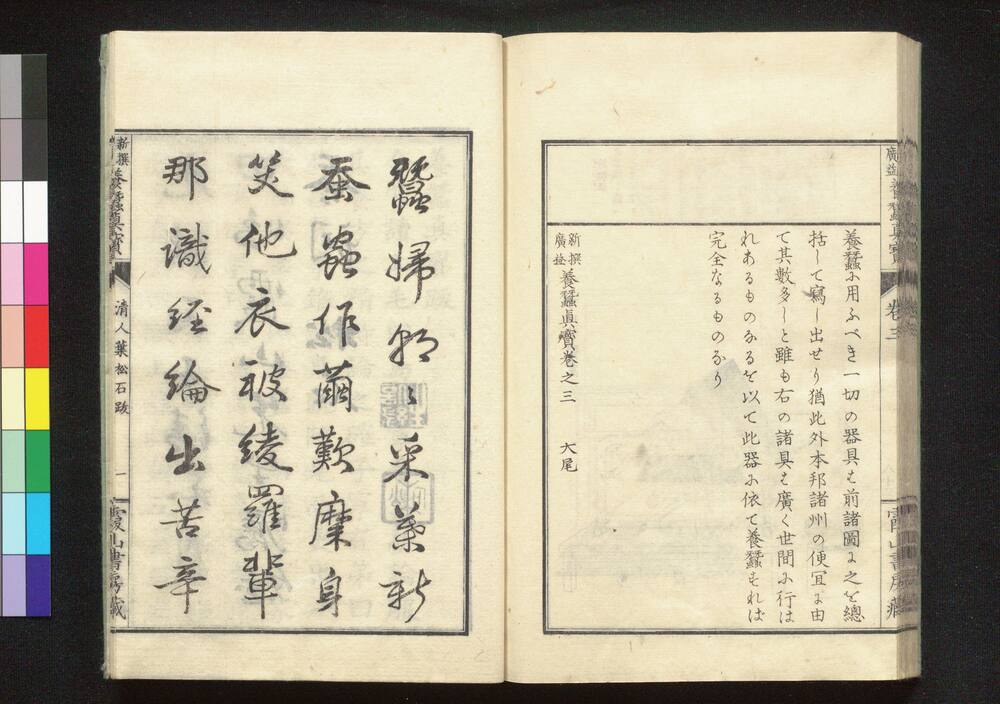 廣益養蠶眞寶
巻三
霞山書房藏
養蠶に用ふべき一切の器具は前諸圖に之を總
括して寫し出せり猶此外本邦諸州の便冝に由
て其數多しと雖も右の諸具は廣く世間に行は
れあるものなるを以て此器に依て養蠶すれば
完全なるものなり
新撰廣益養蠶眞寶巻之三 大尾
蠶婦朝〻采葉新
蚕蟲作繭歎糜身
笑他衣被綾羅輩
那識経綸出苦辛
新撰養蠶眞寶
清人葉松石跋
一
霞山書房藏